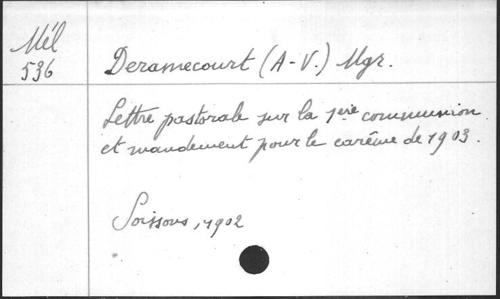 Mél
536
Deramecourt (A-V.) Mgr.
Lettre pastorale sur la 1ere communion
et mandement pour le carême de 1903.
Soissons, 1902